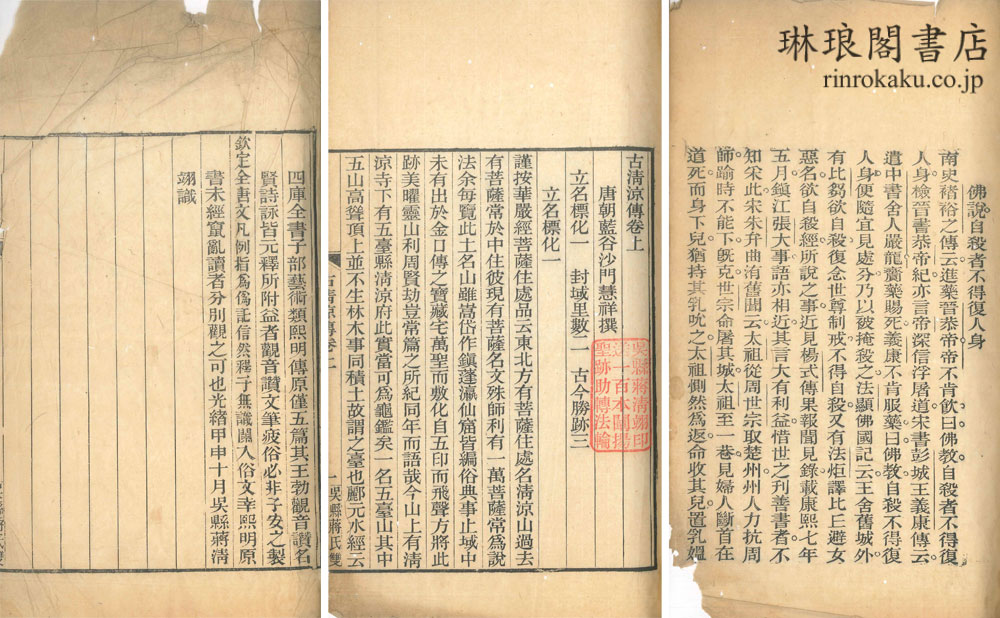 琳琅閣書店
rinrokaku.co.jp
佛說自殺者不得復人身
南史褚裕之傳云進藥晉恭帝帝不肯飲曰佛教自殺者不得復
人身檢晉書恭帝紀亦言帝深信浮屠道宋書彭城王義康傳云
遣中書舍人嚴龍齎藥賜死義康不肯服藥曰佛教自殺不得復
人身便隨宜見處分乃以被掩殺之法顯佛國記云王舍舊城外
有比芻欲自殺復念世尊制戒不得自殺又有法炬譯比丘避女
惡名欲自殺經所說之事近見楊式傳果報聞見錄載康熙七年
五月鎮江張大事語亦相近其言大有利益惜世之利善書者不
知采此宋朱弁曲洧舊聞云太祖從周世宗取楚州州人力抗周
師踰時不能下旣克世宗命屠其城太祖至一巷見婦人斷首在
道死而身下兒猶持其乳吮之太祖惻然爲返命收其兒置乳媼
古清涼傳卷上
唐朝藍谷沙門慧祥撰
立名標化一　封域里數二　古今勝跡三
立名標化一
謹按華嚴經菩薩住處品云東北方有菩薩住處名清涼山過去
有菩薩常於中住彼現有菩薩名文殊師利有一萬菩薩常爲說
法余每覽此土名山雖嵩岱作鎮蓬瀛仙窟皆編俗典事止域中
未有出於金口傳之寶藏宅萬聖而敷化自五印而飛聲方將此
跡美曜靈山利周賢劫豈常篇之所紀同年而語哉今山上有清
涼寺下有五臺縣清涼府此實當可爲龜鑑矣一名五臺山其中
五山高聳頂上並不生林木事同積土故謂之臺也酈元水經云
古清涼傳卷上
一
吳縣蔣氏雙
吳縣蔣清翊印
送一百本闡揚
聖跡助轉法輪
四庫全書子部藝術類熙明傳原僅五篇其王勃觀音讚名
賢詩詠皆元釋所附益者觀音讚文筆疲俗必非子安之製
欽定全唐文凡例指爲僞託信然釋子無識闌入俗文幸熙明原
書未經竄亂讀者分別觀之可也光緒甲申十月吳縣蔣清
翊識